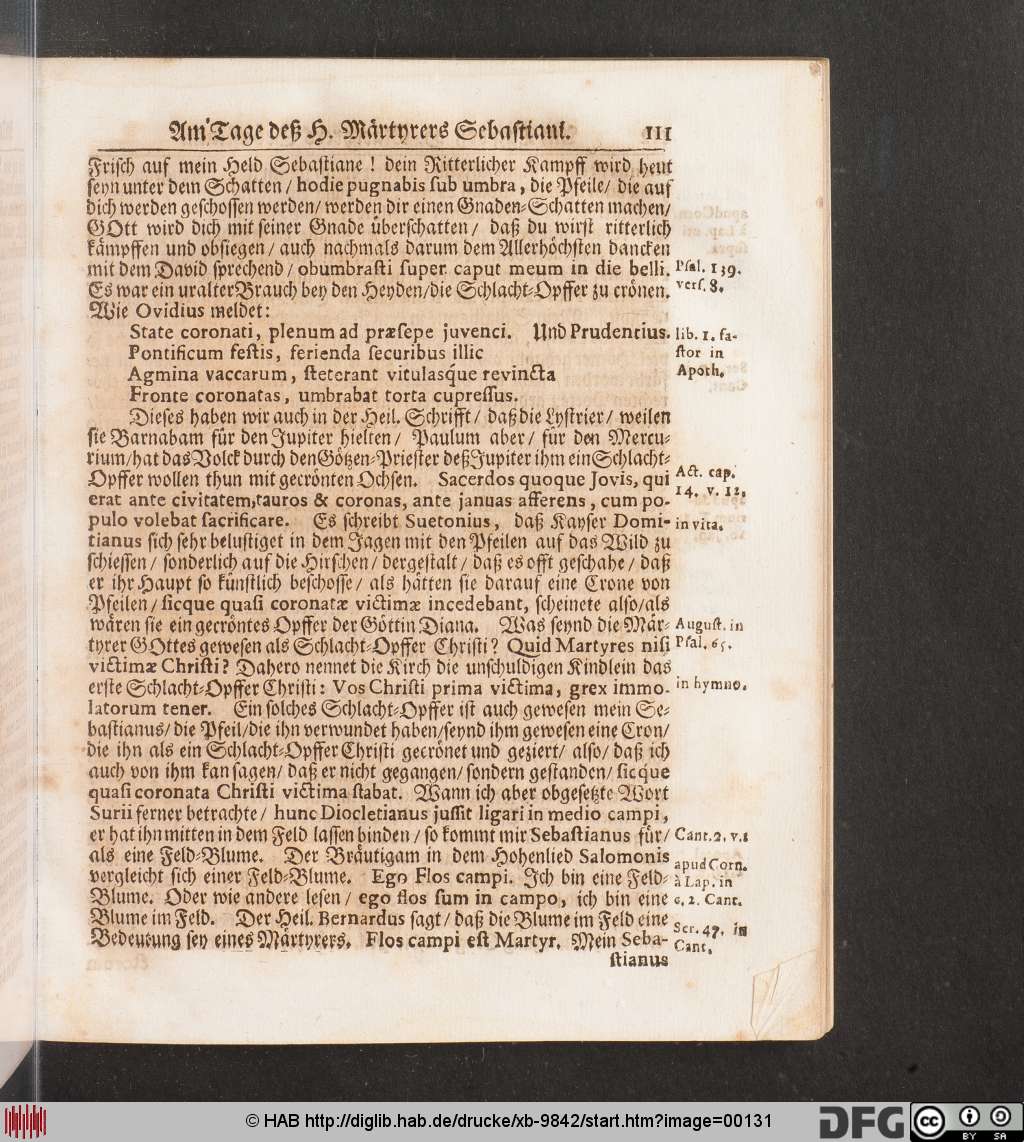 Am Tage deß H. Märtyrers Sebastiani. 111
Frisch auf mein Held Sebastiane ! dein Ritterlicher Kampff wird heut
seyn unter dem Schatten / hodie pugnabis sub umbra, die Pfeile / die auf
dich werden geschossen werden / werden dir einen Gnaden-Schatten machen /
GOtt wird dich mit seiner Gnade überschatten / daß du wirst ritterlich
kämpffen und obsiegen / auch nachmals darum dem Allerhöchsten dancken
mit dem David sprechend / obumbrasti super caput meum in die belli.
Psal. 139.
vers. 8.
Es war ein uralter Brauch bey den Heyden / die Schlacht-Opffer zu crönen.
Wie Ovidius meldet:
State coronati, plenum ad præsepe juvenci. Und Prudentius.
lib. 1. fa-
stor in
Apoth.
Pontificum festis, ferienda securibus illic
Agmina vaccarum, steterant vitulasq́ue revincta
Fronte coronatas, umbrabat torta cupressus.
Dieses haben wir auch in der Heil. Schrifft / daß die Lystrier / weilen
sie Barnabam für den Jupiter hielten / Paulum aber / für den Mercu-
rium / hat das Volck durch den Götzen-Priester deß Jupiter ihm ein Schlacht-
Opffer wollen thun mit gecrönten Ochsen. Sacerdos quoque Jovis, qui
Act. cap.
14. v. 12.
erat ante civitatem, tauros & coronas, ante januas afferens, cum po-
pulo volebat sacrificare. Es schreibt Suetonius, daß Kayser Domi-
in vita.
tianus sich sehr belustiget in dem Jagen mit den Pfeilen auf das Wild zu
schiessen / sonderlich auf die Hirschen / dergestalt / daß es offt geschahe / daß
er ihr Haupt so künstlich beschosse / als hätten sie darauf eine Crone von
Pfeilen / sicque quasi coronatæ victimæ incedebant, scheinete also / als
wären sie ein gecröntes Opffer der Göttin Diana. Was seynd die Mär-
tyrer GOttes gewesen als Schlacht-Opffer Christi? Quid Martyres nisi
August. in
Psal. 65.
victimæ Christi? Dahero nennet die Kirch die unschuldigen Kindlein das
erste Schlacht-Opffer Christi: Vos Christi prima victima, grex immo-
in hymno.
latorum tener. Ein solches Schlacht-Opffer ist auch gewesen mein Se-
bastianus / die Pfeil / die ihn verwundet haben / seynd ihm gewesen eine Cron /
die ihn als ein Schlacht-Opffer Christi gecrönet und geziert / also / daß ich
auch von ihm kan sagen / daß er nicht gegangen / sondern gestanden / sicque
quasi coronata Christi victima stabat. Wann ich aber obgesetzte Wort
Surii ferner betrachte / hunc Diocletianus jussit ligari in medio campi,
er hat ihn mitten in dem Feld lassen binden / so kommt mir Sebastianus für /
Cant. 2. v. 1
als eine Feld-Blume. Der Bräutigam in dem Hohenlied Salomonis
vergleicht sich einer Feld-Blume. Ego Flos campi. Ich bin eine Feld-
apud Corn.
à Lap. in
c. 2. Cant.
Blume. Oder wie andere lesen / ego flos sum in campo, ich bin eine
Blume im Feld. Der Heil. Bernardus sagt / daß die Blume im Feld eine
Ser. 47. in
Cant.
Bedeutung sey eines Märtyrers. Flos campi est Martyr. Mein Seba-
stianus
© HAB http://diglib.hab.de/drucke/xb-9842/start.htm?image=00131
DFG
cc BY SA